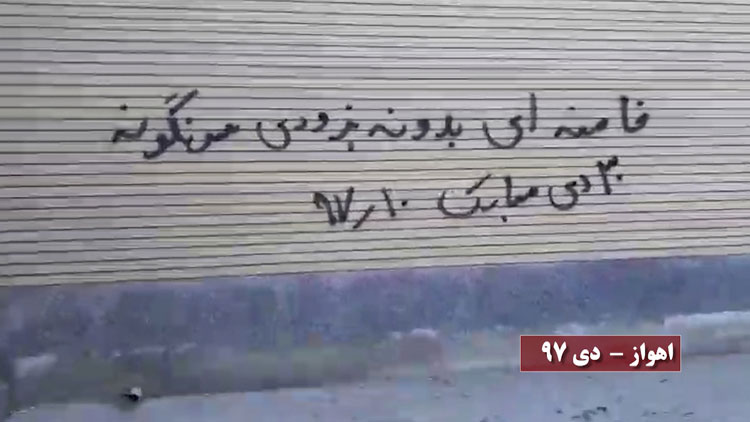 خامنه ای بدونه بزودی سرنگونه
۳۰ دی مبارک ۹۷٫۱۰
اهواز - دی ۹۷